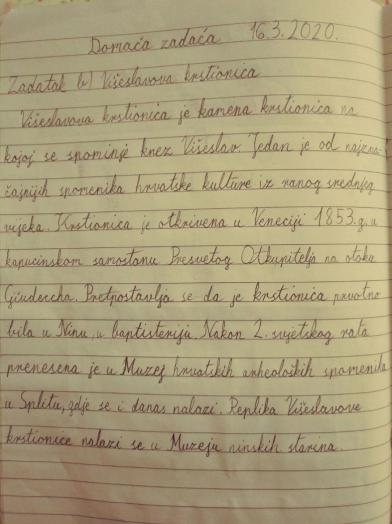 Domaća zadaća 16.3.2020.
Zadatak b) Višeslavova krstionica
Višeslavova krstionica je kamena krstionica na
kojoj se spominje knez Višeslav. Jedan je od najzna-
čajnijih spomenika hrvatske kulture iz ranog srednjeg
vijeka. Krstionica je otkrivena u Veneciji 1853.g. u
kapucinskom samostanu Presvetog Otkupitelja na otoku
Giudercha. Pretpostavlja se da je krstionica prvotno
bila u Ninu, u baptisteriju. Nakon 2. svjetskog rata
prenesena je u Muzej hrvatskih arheoloških spomenika
u Splitu, gdje se i danas nalazi. Replika Višeslavove
krstionice nalazi se u Muzeju ninskih starina.